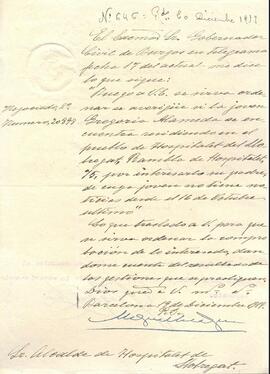 El Excmo Sr. Gobernador
Civil de Burgos en telegrama
fecha 17 del actual me dice
lo que sigue:
"Ruego V.E. se sirva orde
nar se averigüe si la joven
Gregoria Alameda se en
cuentra residiendo en el
pueblo de Hospitalet del Llo
bregat, Rambla de Hospitalet
75, por interesarlo su padre,
de cuya joven no tiene no
ticias desde el 16 de Octubre
último"
Negociado
Numero,
Lo que traslado a V. para que
se sirva ordenar la compro
bación de lo interesado, dan
dome cuenta del resultado de
las gestiones que practiquen.
Dios gue a V. m. a.
Barcelona 19 de Diciembre
Sr. Alcalde de Hospitalet de
Llobregat.